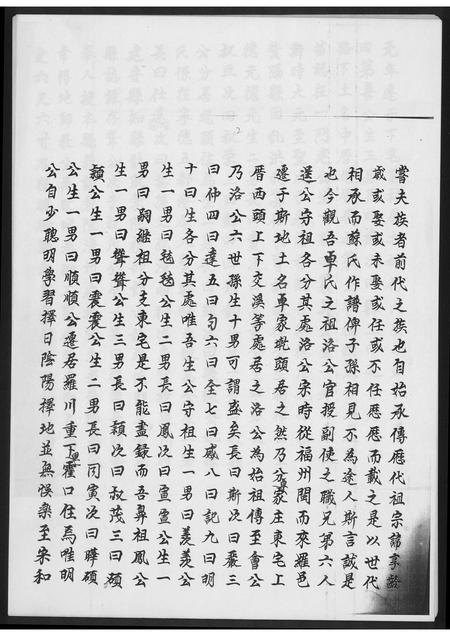 嘗夫族者前代之族也自始承傳歷代祖宗諱字齡
歲或娶或未娶或任或不任歷歷而載之是以世代
相承而蘇氏作譜俾子孫相見不為途人斯言誠是
也今觀吾卓氏之祖洛公官授副使之職兄弟六人
送公守祖各分其處洛公宋時從福州閩而來羅邑
遷于斯地土名卓家坑頭居之然乃分家庄東宅上
厝西頭上下交溪等處居之洛公為始祖傳至會公
乃洛公六世孫生十男可謂盛矣長曰斯次曰裴三
曰仲四曰達五曰勻六曰全七曰威八曰記九曰明
十曰生各分其處唯吾生公守祖生一男曰羨羨公
生一男曰毯毯公生二男長曰鳳次曰亶亶公生一
男曰嗣継祖分支東宅是不能盡錄而吾鼻祖鳳公
生一男曰聳聳公生三男長曰顏次曰叔茂三曰碩
顏公生一男曰震震公生二男長曰囘寅次曰曄碩
公生一男曰順順公遷居羅川重下霍口住焉唯明
公自少聰明學習擇日陰陽擇地並無悞衆至宋和